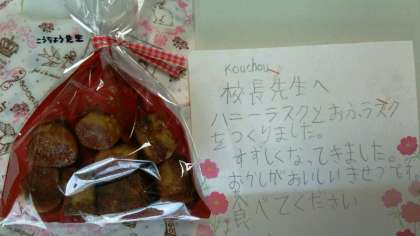 こうちょう先生
Kouchou
校長先生へ
ハニーラスクとおふラスク
をつくりました。
すずしくなってきました。
おかしがおいしいきせつです。
食べてください